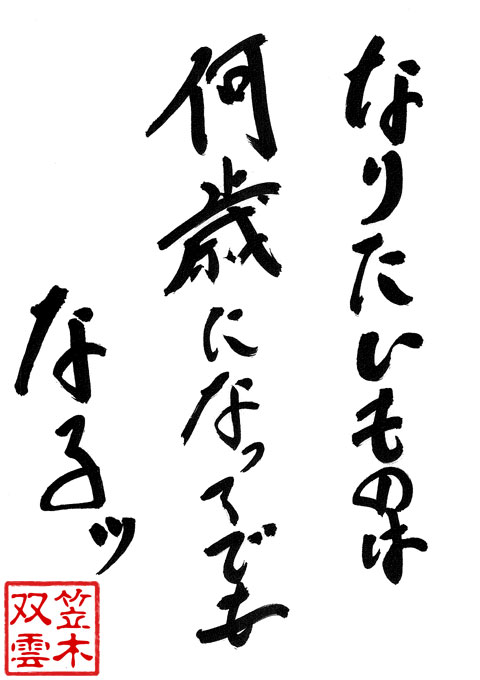 なりたいものは
何歳になってでも
なるッ
笠木
双雲